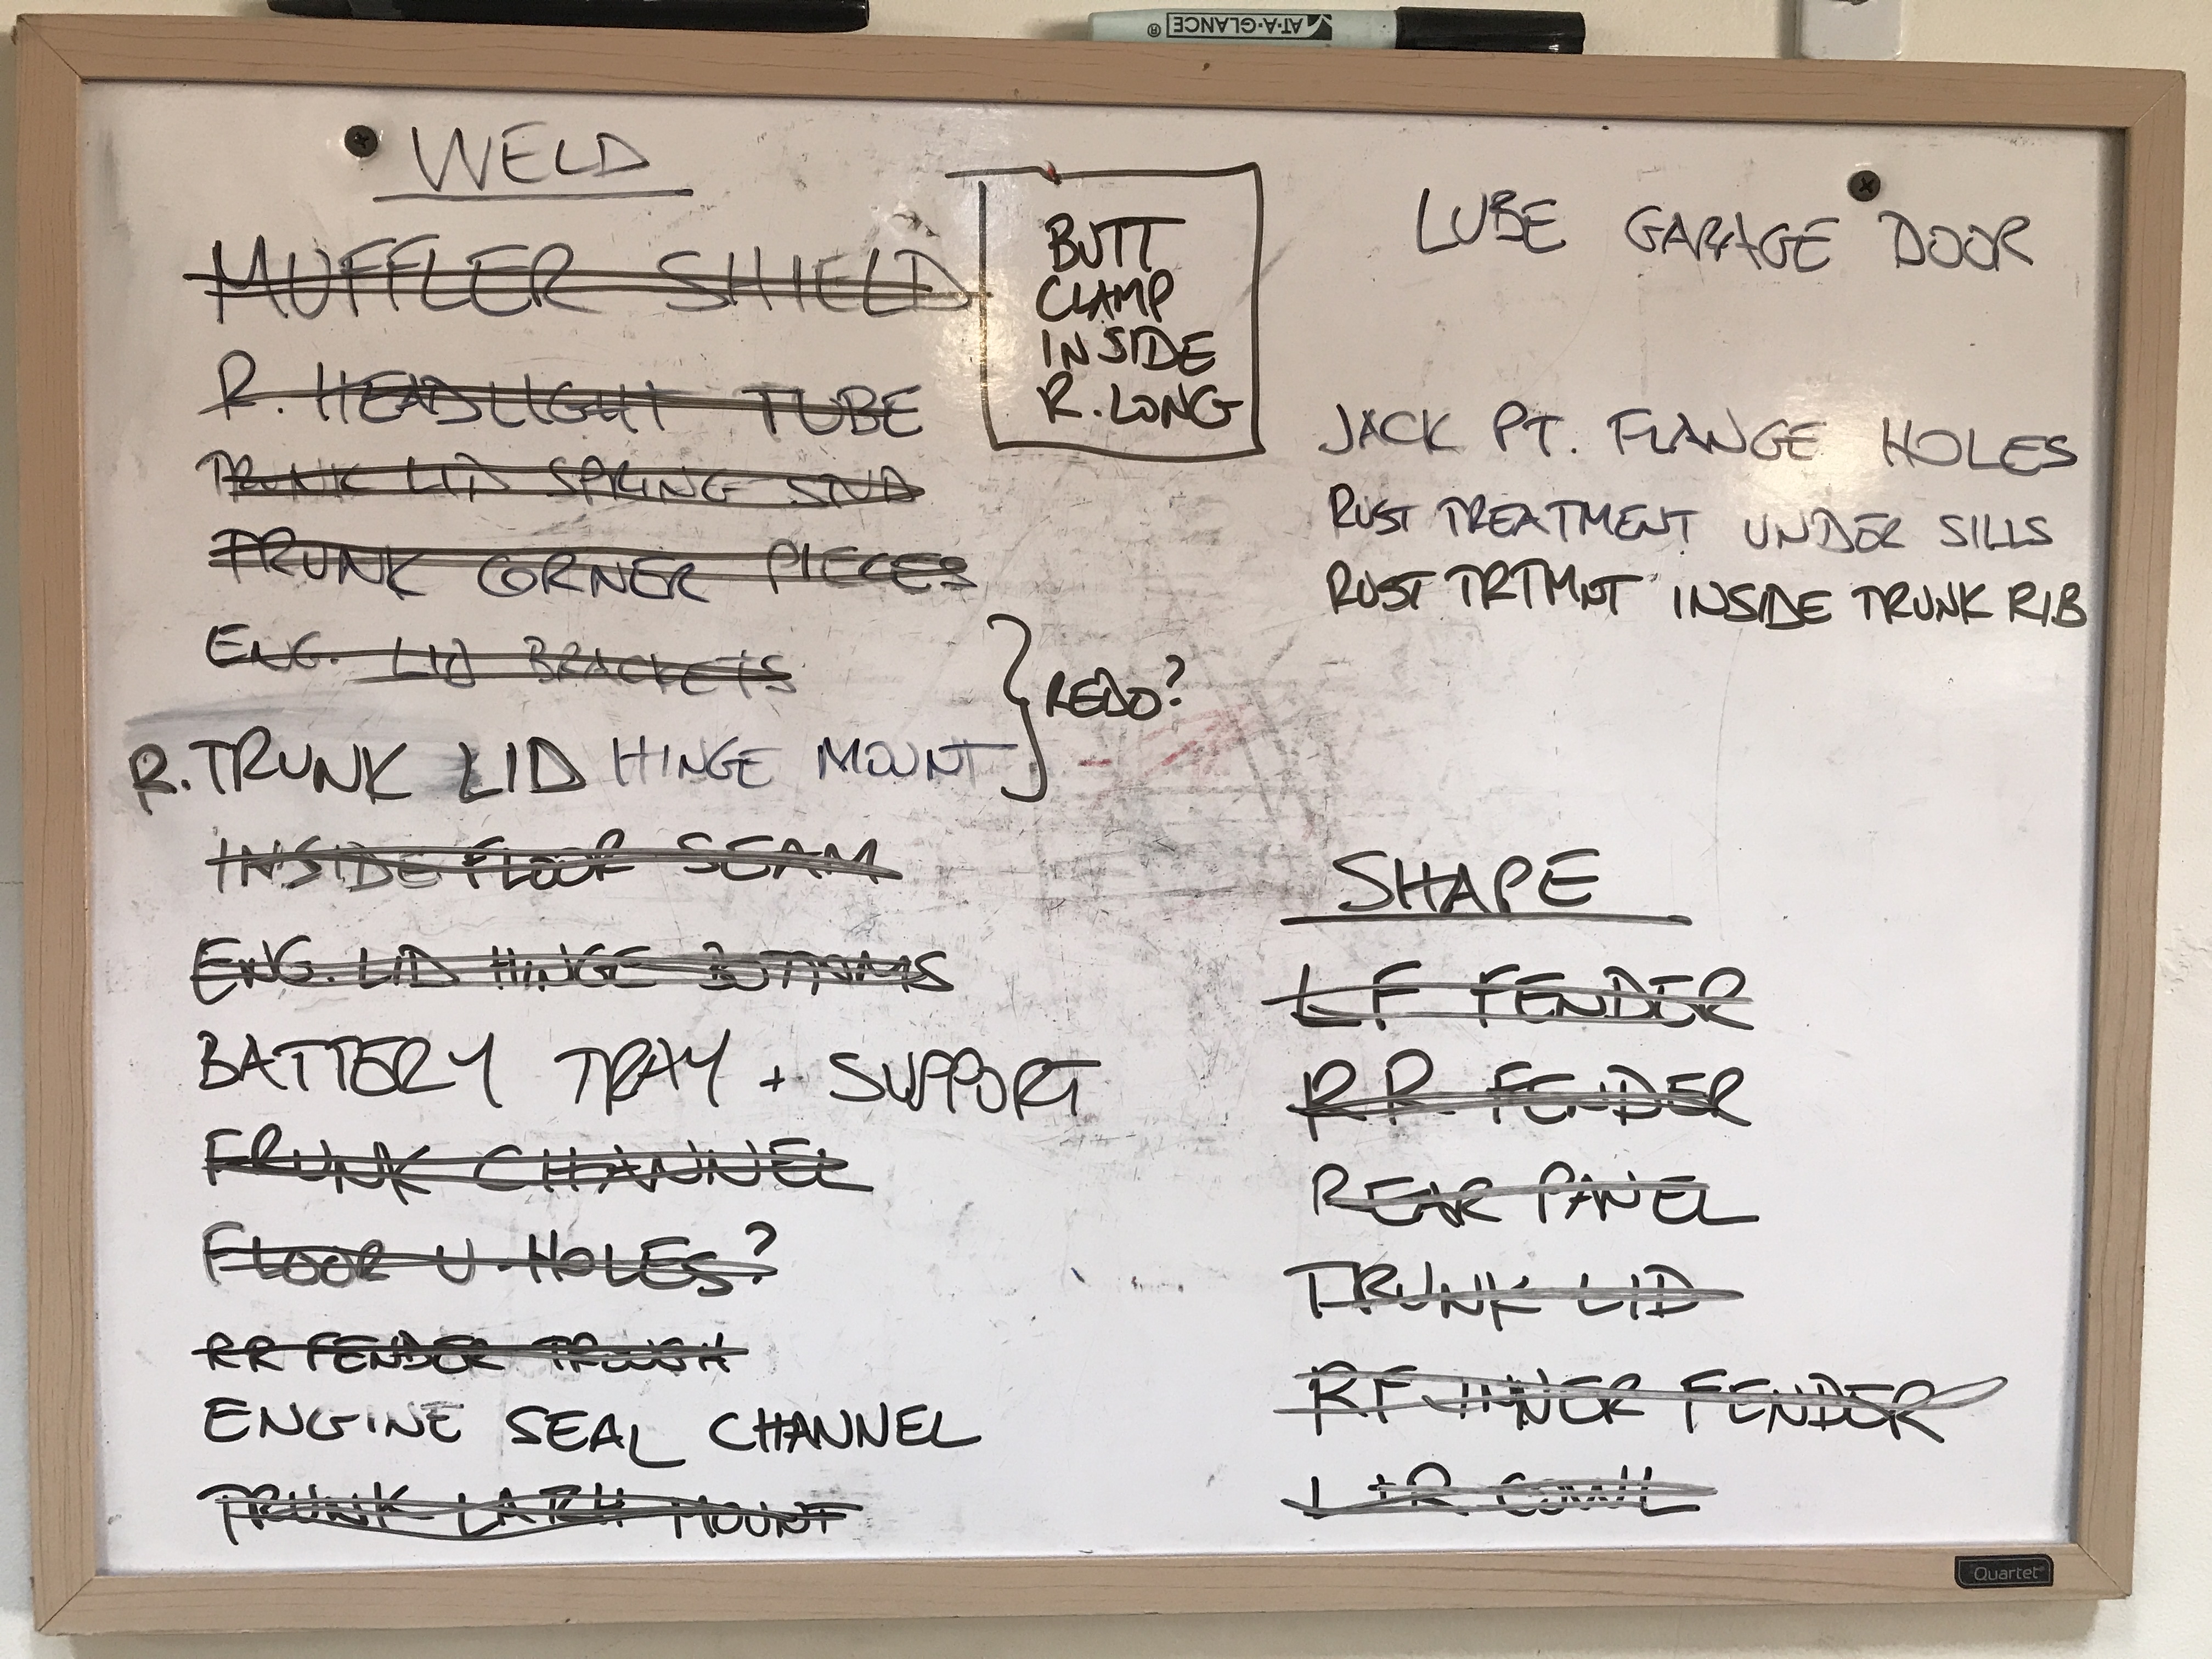 AT-A-GLANCE®
WELD
MUFFLER SHIELD
R. HEADLIGHT TUBE
TRUNK LID SPRING
TRUNK CORNER PIECES
ENG. LID BRACKETS
R. TRUNK LID HINGE MOUNT
REDO?
INSIDE FLOOR SEAM
ENG. LID HINGE BOTTOMS
BATTERY TRAY + SUPPORT
FRUNK CHANNEL
FLOOR U-HOLES?
RR FENDER TROUGH
ENGINE SEAL CHANNEL
TRUNK LATCH MOUNT
BUTT
CLAMP
INSIDE
R. LONG
LUBE GARAGE DOOR
JACK PT. FLANGE HOLES
RUST TREATMENT UNDER SILLS
RUST TRTMNT INSIDE TRUNK RIB
SHAPE
LF FENDER
RR FENDER
REAR PANEL
TRUNK LID
RF INNER FENDER
L+R COWL
Quartet